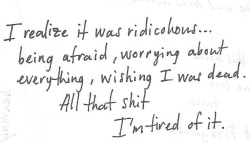 I realize it was ridicolous...
being afraid, worrying about
everything, wishing I was dead.
All that shit
I'm tired of it.